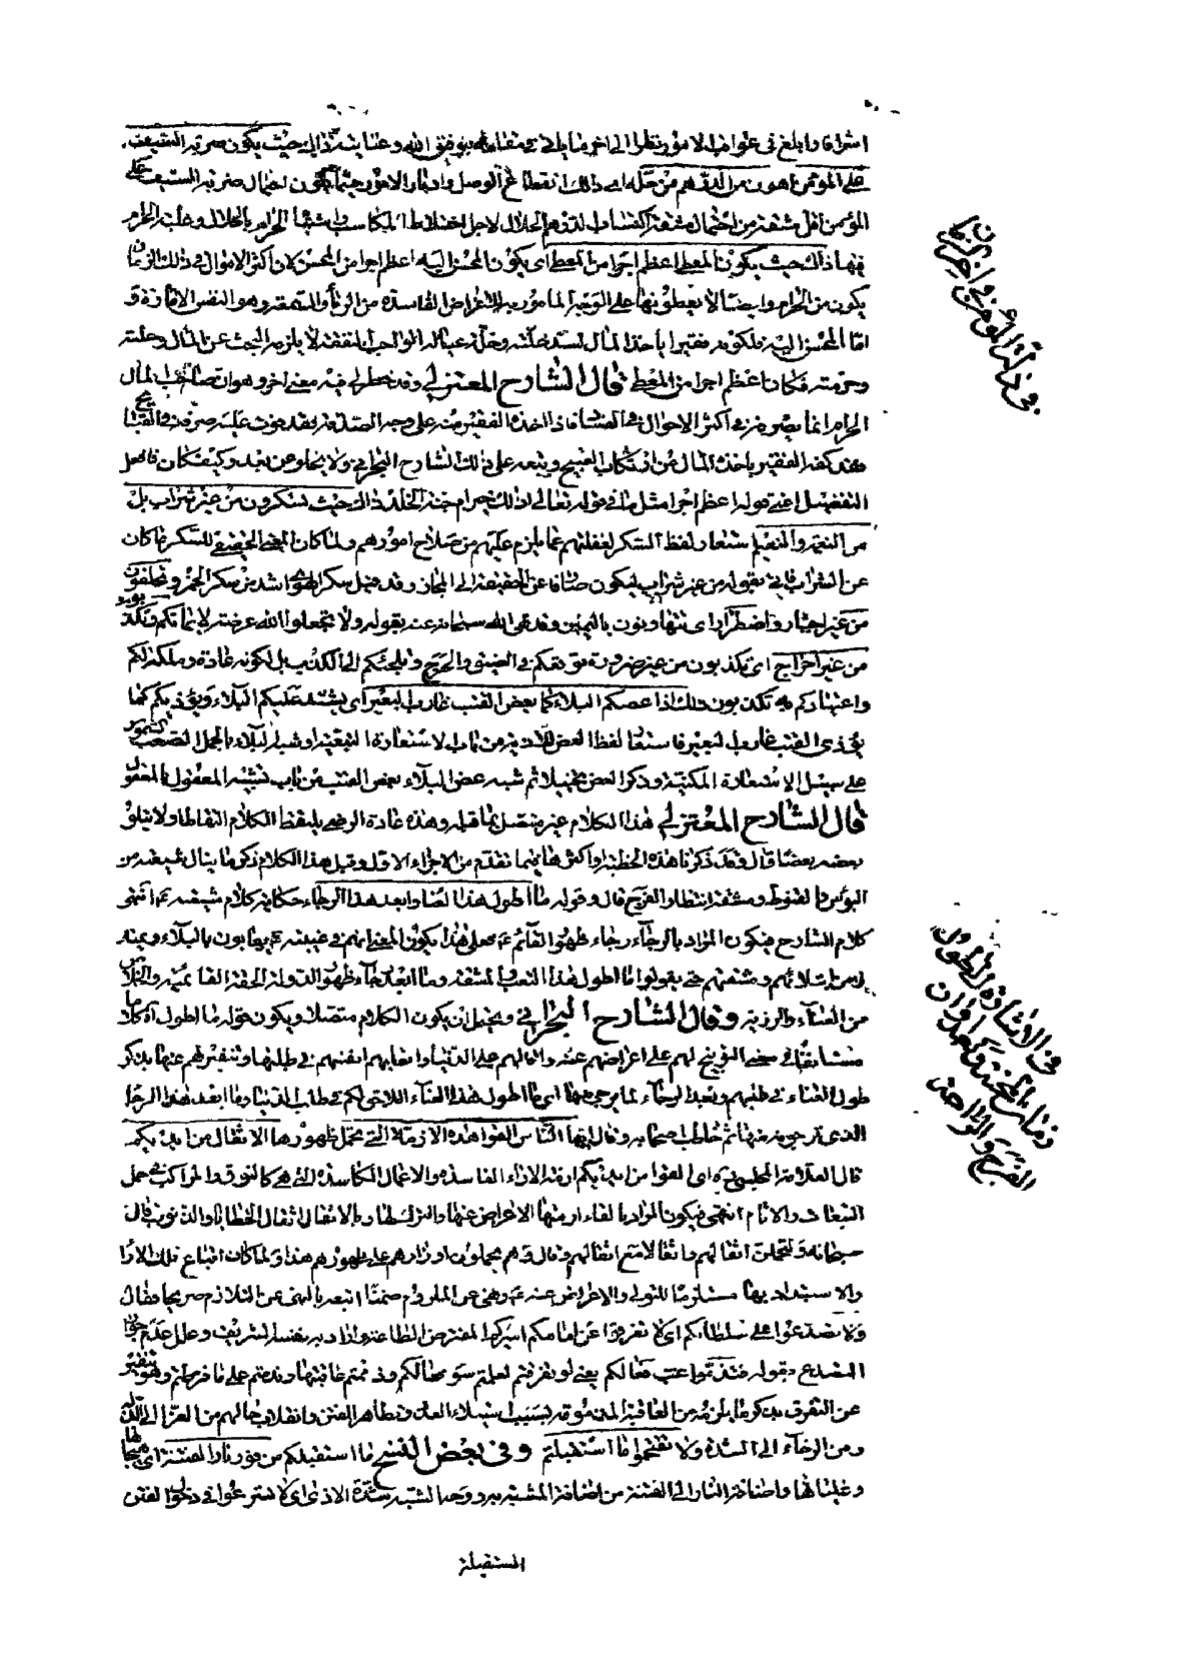 على المؤمن اهون من الدرهم من حلّه اى ذلك انقطاع الوصل وادبار الامور حيثما يكون احتمال ضربة السيف على
المؤمن اقل مشقة من احتمال مشقة اكتساب الدرهم الحلال لاجل اختلاط المكاسب واشتباه الحرام بالحلال وغلبة الحرام
فيها ذلك حيث يكون المعطى اعظم اجرا من المعطى اى يكون المحسن اليه اعظم اجرا من المحسن لان اكثر الاموال فى ذلك الزمان
يكون من الحرام وايضا لا يعطونها على الوجه المأمور به للاغراض الفاسدة من الرياء والسمعة وهو النفس الامارة و
امّا المحسن اليه فلكونه فقيرا يأخذ المال لسدّ خلّته وخلّة عياله الواجب النفقة لا يلزمه البحث عن المال وحلّيته
وحرمته فكان اعظم اجرا من المعطى قال الشارح المعتزلى وقد خطر لى فيه معنى اخر وهو ان صاحب المال
الحرام انما يصرفه فى اكثر الاحوال فى الفساد فاذا اخذه الفقير منه على وجه الصدقة فقد فوت عليه صرفه فى القبائح
فقد كفه الفقير باخذ المال من ارتكاب القبيح وتبعه على ذلك الشارح البحرانى ولا يخلو عن بعد وكيف كان فافعل
التفضيل اعنى قوله اعظم اجرا مثل ما فى قوله تعالى اذلك خير ام جنة الخلد ذاك حيث تسكرون من غير شراب بل
من النعمة والنعيم استعار لفظ السكر لغفلتهم عما يلزم عليهم من صلاح امورهم ولما كان المعنى الحقيقى للسكر ما كان
عن الشراب فاتى بقوله من غير شراب ليكون صارفا عن الحقيقة الى المجاز وقد قيل سكر الهوى اشد من سكر الخمر وتحلفون
من غير اضطرار اى تتهاونون باليمين وقد نهى الله سبحانه عنه بقوله ولا تجعلوا الله عرضة لايمانكم وتكذبون
من غير احراج اى تكذبون من غير ضرورة توقعكم فى الضيق والحرج وتلجئكم الى الكذب بل لكونه عادة وملكة لكم
واعتيادكم به تكذبون ذلك اذا عضكم البلاء كما يعض القتب غارب البعير اى يشتد عليكم البلاء ويؤذيكم كما
يؤذى القتب غارب البعير فاستعار لفظ العض للاذية من باب الاستعارة التبعية او شبه البلاء بالجمل الصعب الشموس
على سبيل الاستعارة المكنية وذكر العض تخييلا ثم شبه عض البلاء بعض القتب من باب تشبيه المعقول بالمعقول
قال الشارح المعتزلى هذا الكلام غير متصل بما قبله وهذه عادة الرضى يلتقط الكلام التقاطا ولا يتلو
بعضه بعضا قال وقد ذكرنا هذه الخطبة او اكثرها فيما تقدم من الاجزاء الاول وقبل هذا الكلام ذكر ما ينال شيعته من
البؤس والقنوط ومشقة انتظار الفرج قال وقوله ما اطول هذا العناء وابعد هذا الرجاء حكاية كلام شيعته انتهى
كلام الشارح فيكون المراد بالرجاء رجاء ظهور القائم فعلى هذا يكون المعنى انهم فى غيبته يصابون بالبلاء ويمتد
زمن ابتلائهم ومشقتهم حتى يقولوا ما اطول هذا التعب والمشقة وما ابعد رجاء ظهور الدولة الحقة القائمية والخلاص
من العناء والرزية وقال الشارح البحرانى ويحتمل ان يكون الكلام متصلا ويكون قوله ما اطول اه كلاما
مستانفا فى معنى التوبيخ لهم على اعراضهم عنه واقبالهم على الدنيا واتعابهم انفسهم فى طلبها وتنفيرهم عنها بذكر
طول العناء فى طلبهم وبعد الرجاء لما يرجى منها اى ما اطول هذا العناء اللاحق لكم فى طلب الدنيا وما ابعد هذا الرجاء
الذى ترجونه منها ثم خاطب اصحابه وقال ايها الناس القوا هذه الازمة التى تحمل ظهورها الاثقال من ايديكم
قال العلامة المجلسى ره اى القوا من ايديكم ازمة الاراء الفاسدة والاعمال الكاسدة التى هى كالنوق والمراكب فى حمل
التبعات والاثام انتهى فيكون المراد بالقاء ازمتها الاعراض عنها والترك لها وبالاثقال اثقال الخطايا والذنوب قال
سبحانه وليحملن اثقالهم واثقالا مع اثقالهم وقال وهم يحملون اوزارهم على ظهورهم هذا ولما كان اتباع تلك الاراء
والاستبداد بها مستلزما للتولى والاعراض عنه ونهى عن الملزوم ضمنا اتبعه بالنهى عن اللازم صريحا فقال
ولا تصدعوا على سلطانكم اى لا تفرقوا عن امامكم اميركم المفترض الطاعة واراد به نفسه الشريف وعلل عدم جواز
التصدع بقوله فتذموا غب فعالكم يعنى لو تفرقتم لعلمتم سوء فعالكم وذممتم عاقبتها وندمتم على ما فرطتم وهو تنفير
عن التفرق بذكر ما يلزمه من العاقبة المذمومة بسبب استيلاء العدو وتظاهر الفتن وانقلاب حالهم من العز الى الذلة
ومن الرخاء الى الشدة ولا تقتحموا ما استقبلتم وفى بعض النسخ ما استقبلكم من فور نار الفتنة اى هيجانها
وغليانها واضافة النار الى الفتنة من اضافة المشبه به الى المشبه ووجه الشبه شدة الاذى اى لا تسرعوا فى دخول الفتن
المستقبلة
فى ذلة المؤمن فى اخر الزمان
فى الاشارة الى طول
زمان المحنة وبعد اوان
الفرج والراحة